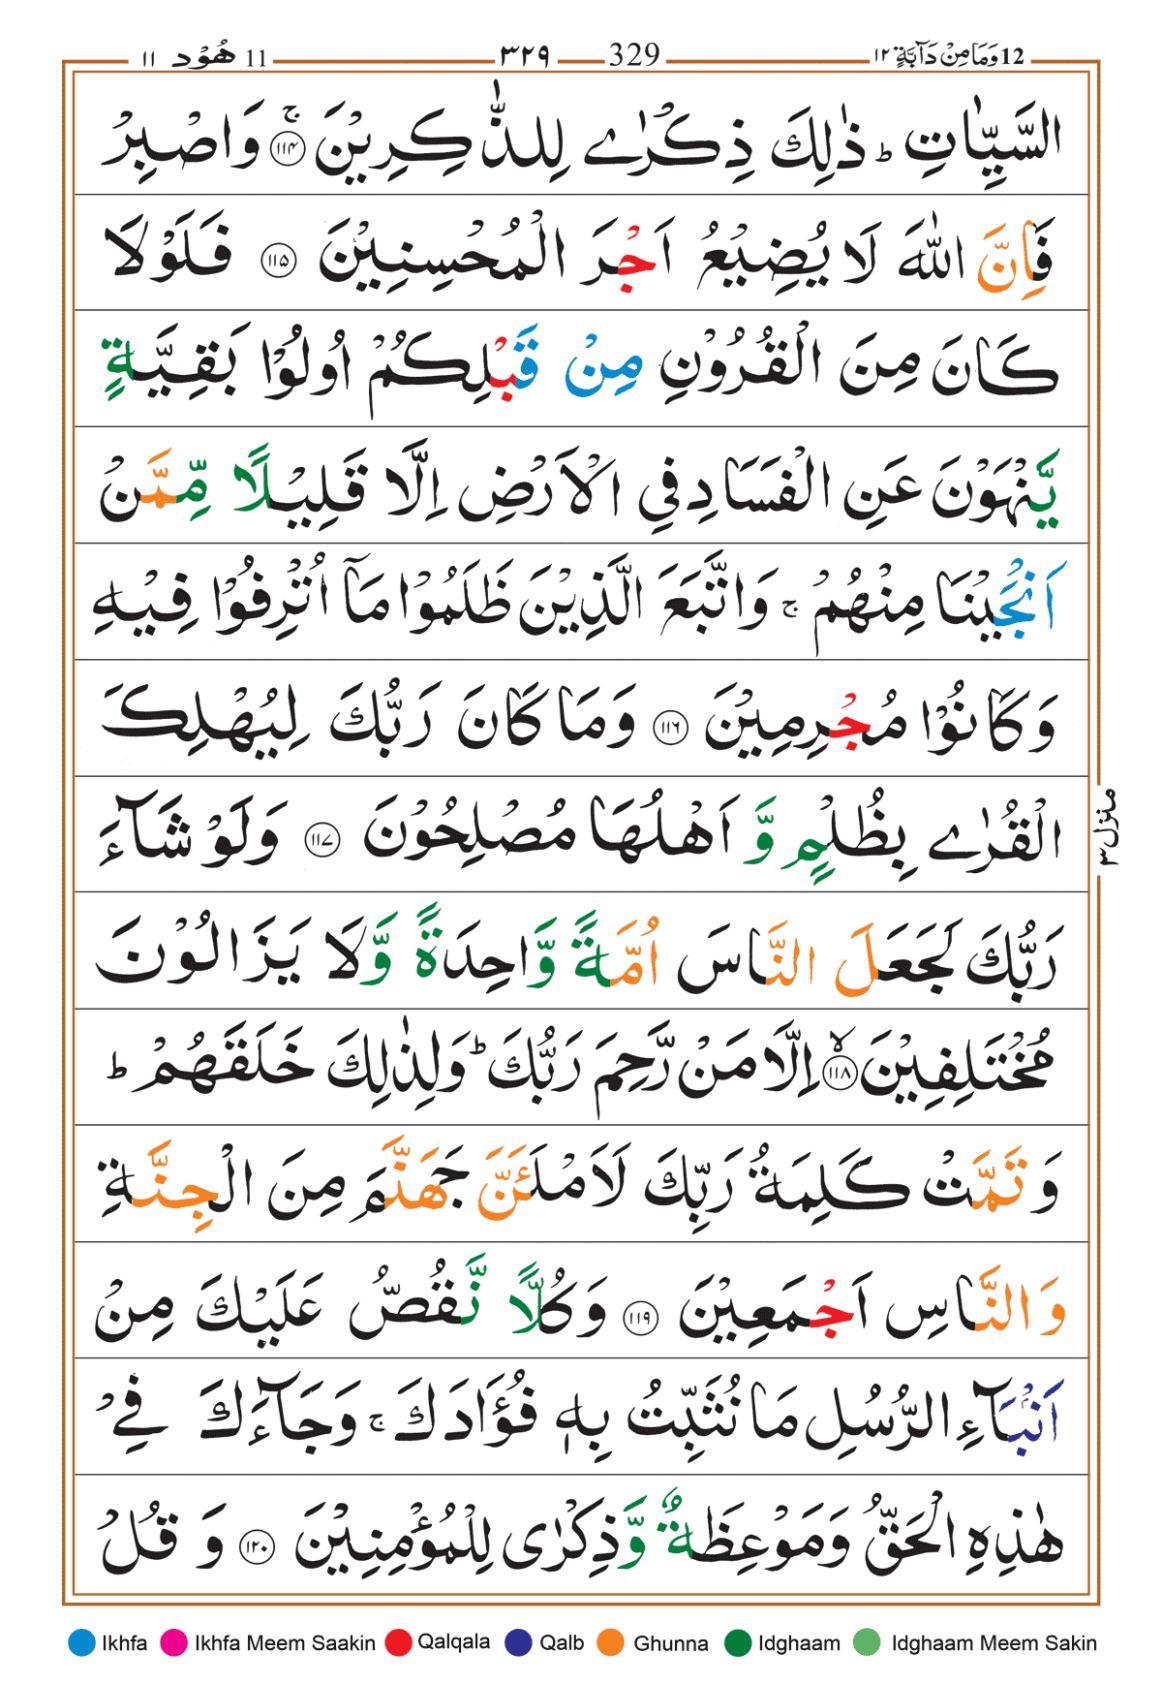 12 وَمَا مِنْ دَآبَّةٍ ١٢ 329 ٣٢٩ 11 هُوْد ١١
السَّيِّاٰتِ ؕ ذٰلِكَ ذِكْرٰے لِلذّٰكِرِيْنَ ۚ ﴿١١٤﴾ وَاصْبِرْ
فَاِنَّ اللّٰهَ لَا يُضِيْعُ اَجْرَ الْمُحْسِنِيْنَ ﴿١١٥﴾ فَلَوْلَا
كَانَ مِنَ الْقُرُوْنِ مِنْ قَبْلِكُمْ اُولُوْا بَقِيَّةٍ
يَّنْهَوْنَ عَنِ الْفَسَادِ فِي الْاَرْضِ اِلَّا قَلِيْلًا مِّمَّنْ
اَنْجَيْنَا مِنْهُمْ ۚ وَاتَّبَعَ الَّذِيْنَ ظَلَمُوْا مَاۤ اُتْرِفُوْا فِيْهِ
وَكَانُوْا مُجْرِمِيْنَ ﴿١١٦﴾ وَمَا كَانَ رَبُّكَ لِيُهْلِكَ
الْقُرٰے بِظُلْمٍ وَّ اَهْلُهَا مُصْلِحُوْنَ ﴿١١٧﴾ وَلَوْ شَآءَ
رَبُّكَ لَجَعَلَ النَّاسَ اُمَّةً وَّاحِدَةً وَّلَا يَزَالُوْنَ
مُخْتَلِفِيْنَ ۙ ﴿١١٨﴾ اِلَّا مَنْ رَّحِمَ رَبُّكَ ؕ وَلِذٰلِكَ خَلَقَهُمْ ؕ
وَ تَمَّتْ كَلِمَةُ رَبِّكَ لَاَمْلَـَٔنَّ جَهَنَّمَ مِنَ الْجِنَّةِ
وَ النَّاسِ اَجْمَعِيْنَ ﴿١١٩﴾ وَكُلًّا نَّقُصُّ عَلَيْكَ مِنْ
اَنْۢبَآءِ الرُّسُلِ مَا نُثَبِّتُ بِهٖ فُؤَادَكَ ۚ وَجَآءَكَ فِيْ
هٰذِهِ الْحَقُّ وَمَوْعِظَةٌ وَّذِكْرٰى لِلْمُؤْمِنِيْنَ ﴿١٢٠﴾ وَ قُلْ
منزل ٣
Ikhfa Ikhfa Meem Saakin Qalqala Qalb Ghunna Idghaam Idghaam Meem Sakin